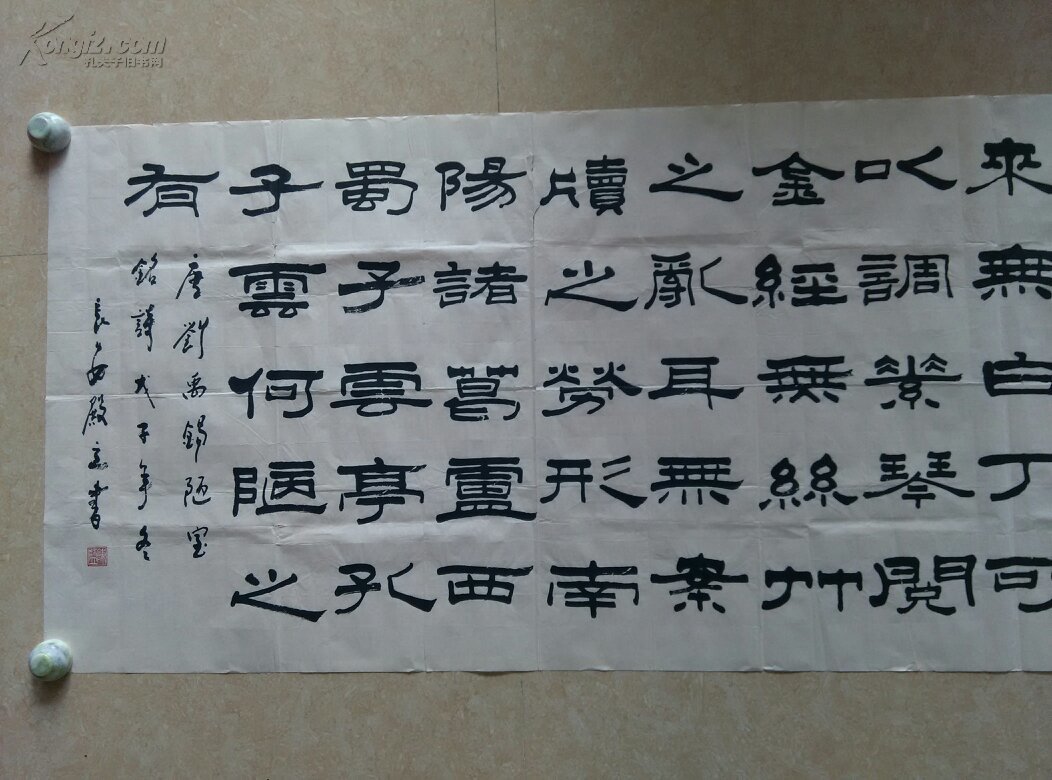 來無白丁可
以調素琴閱
金經無絲竹
之亂耳無案
牘之勞形南
陽諸葛盧西
蜀子雲亭孔
子雲何陋之
有
唐劉禹錫陋室
銘詩戊子年冬
長安殿書
Kongfz.com
孔夫子旧书网